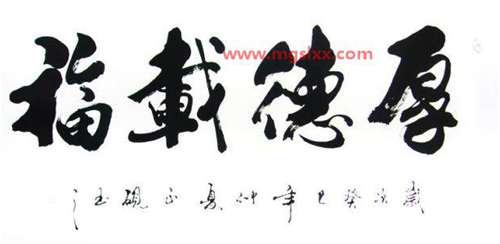 厚德載福
www.mgsixx.com
歲次癸巳年仲夏正硯